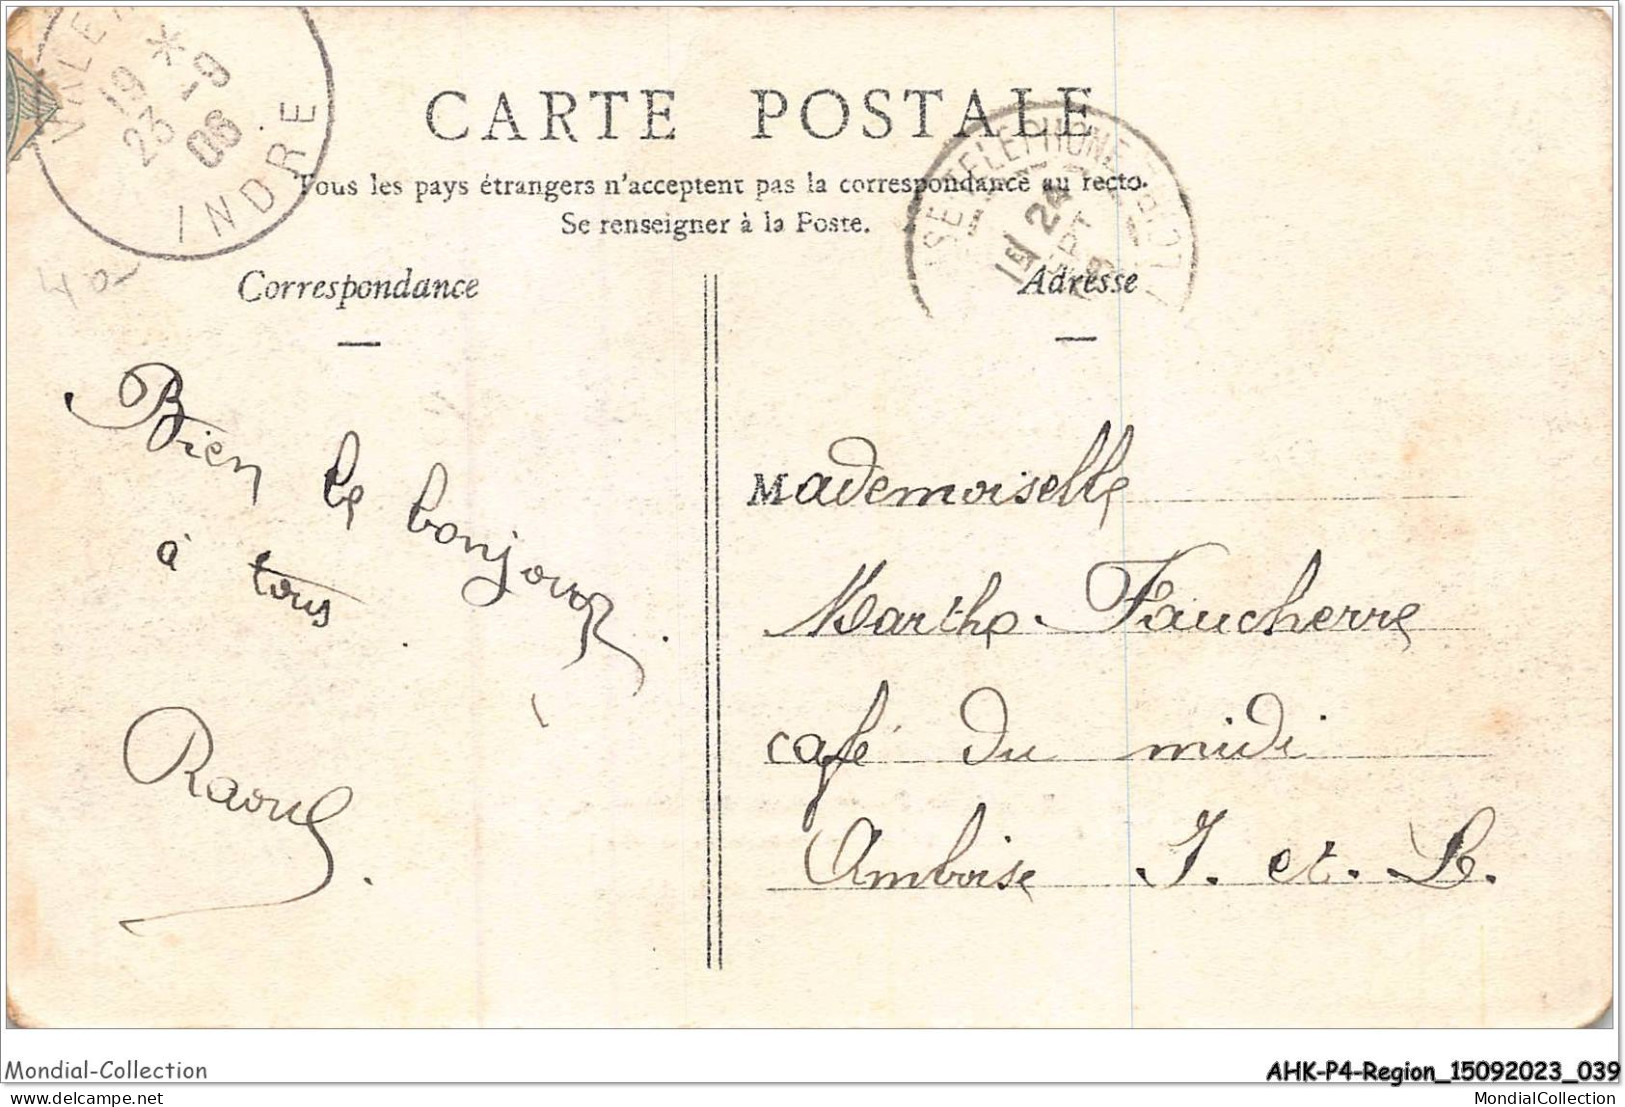 CARTE POSTALE
Tous les pays étrangers n'acceptent pas la correspondance au recto.
Se renseigner à la Poste.
19 *
23 -9
06
INDRE
TELEPHONE
24
SEPT
40
Correspondance
Adresse
Bien le bonjour
à tous.
Raoul.
Mademoiselle
Marthe Faucherre
café du midi
Amboise I. et. L.
Mondial-Collection
AHK-P4-Region_15092023_039
MondialCollection